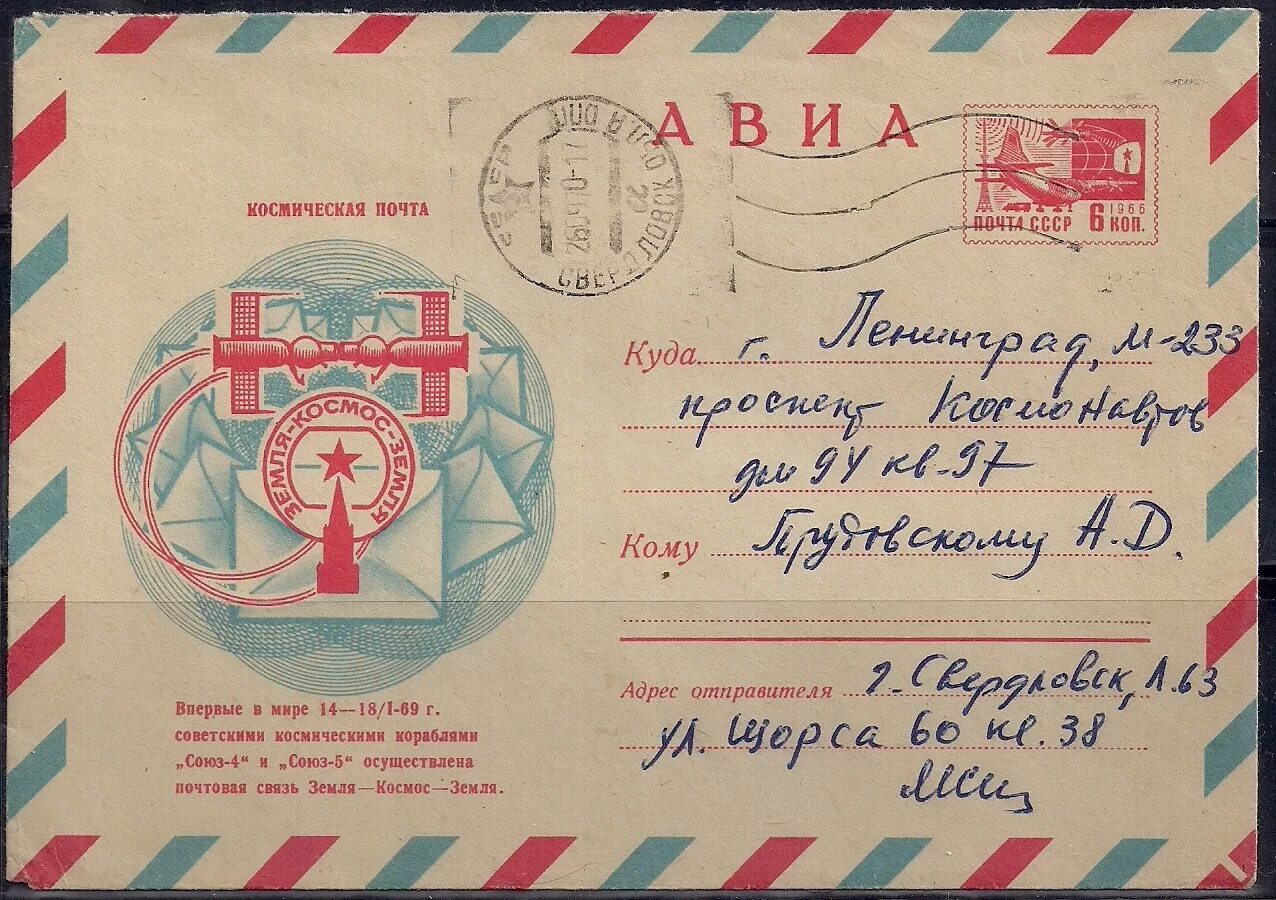 АВИА
СВЕРДЛОВСК
22
1966
ПОЧТА СССР 6 КОП.
КОСМИЧЕСКАЯ ПОЧТА
ЗЕМЛЯ-КОСМОС-ЗЕМЛЯ
Впервые в мире 14—18/I-69 г.
советскими космическими кораблями
„Союз-4" и „Союз-5" осуществлена
почтовая связь Земля—Космос—Земля.
Куда г. Ленинград, М-233
проспект Космонавтов
дом 94 кв-97
Кому Прутовскому А.Д.
Адрес отправителя г. Свердловск, Л.63
ул. Щорса 60 кв. 38